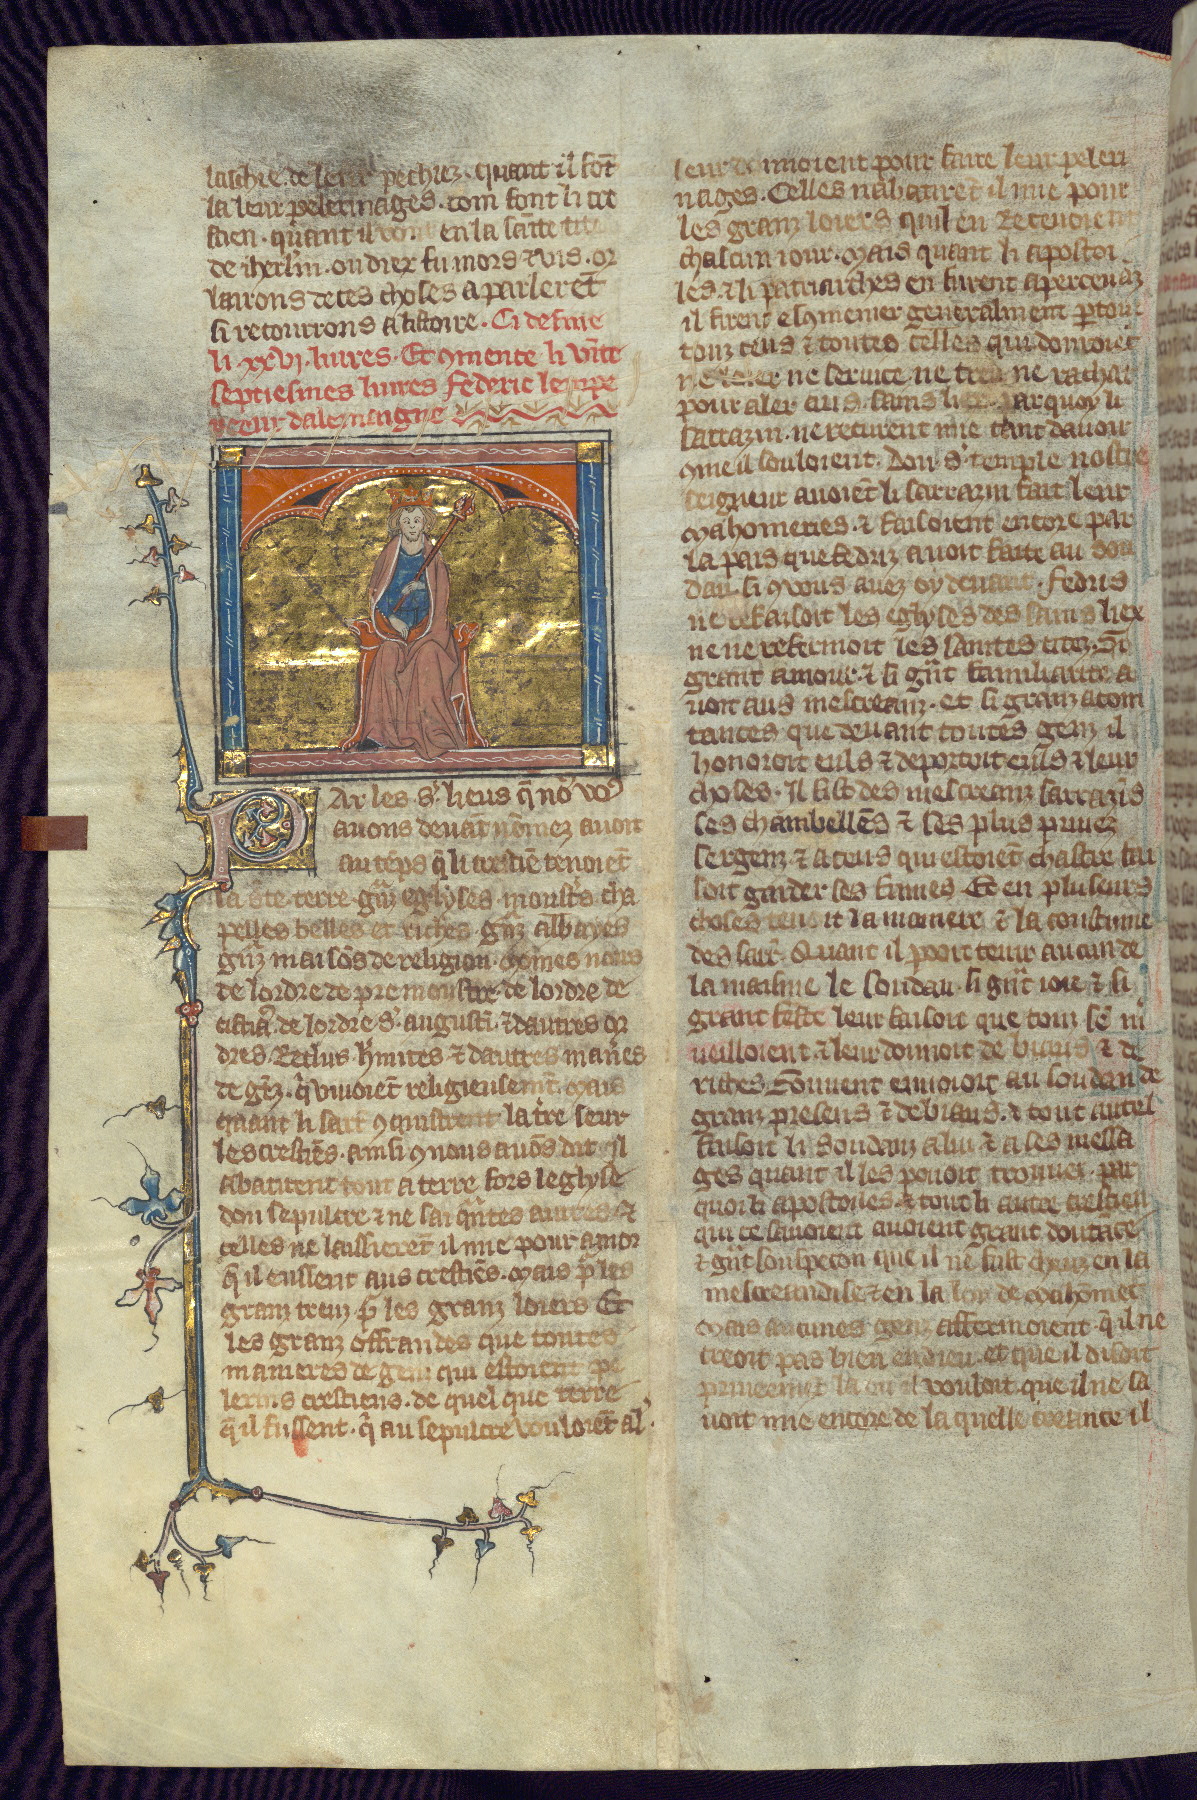 laschie de leur pechiez. quant il font
la leur pelerinages. com font li cre
stien. quant il vont en la sainte
de iherlm. ou diex fu mors ⁊ vis. or
lairons de ces choses a parler et
si retourrons a listoire. Ci define
li .xxvi. liures. Et 9mente li vint
septiesmes liures Federic lempe
reeur dalemaigne
Par les .S. lieus q̄ no9 vo9
auons deuāt nōmez auoit
au tēps q̄ li crestiē tenoiēt
la ste terre. grāz eglyses. moustrs cha
pelles belles et riches. grāz abbayes
grāz maisōs de religion. moines noirs
de lordre de premonstre. de lordre de
cistiax. de lordre S. augusti. ⁊ dautres or
dres. Reclus. hmites. ⁊ dautres man̄es
de gēz. q̄ viuoiēt religieusemt. Mais
quant li sarr̄ 9quistrent la tr̄re seur
les crestiēs. ainsi 9 nous auōs dit. il
abatirent tout a terre. fors leglyse
dou sepulcre ⁊ ne sai quātes autres. ⁊
celles ne laissierēt il mie pour amor
q̄ il eussent aus crestiēs. Mais p les
granz treuz. p les granz loiers Et
les granz offrandes que toutes
manieres de genz qui estoient pe
lerins crestiens. de quel que terre
q̄ il fussent. q̄ au sepulcre vouloiēt al'.
leur donnoient pour faire leur peleri
nages. Celles nabatirēt il mie pour
les granz loiers quil en receuoient
chascun iour. Mais quant li apostoi
les. ⁊ li patriarches en furent aperceuz
il firent es9menier generalment p tout
touz ceus ⁊ toutes celles qui donroiēt
ne loier ne seruice. ne treu ne rachat
pour aler aus sains liex. Par quoy li
sarrazin. ne recurent mie tant dauoir
9me il souloient. Dou .S. temple nostre
seigneur auoiēt li sarrazin fait leur
Mahomeries. ⁊ faisoient encore par
la pais que fedriz auoit faite au sou
dan. si 9 vous auez oy deuant. Fedris
ne refaisoit les eglyses des sains liex
ne ne refermoit les saintes citez. Si
grant amour. ⁊ si grāt familiarite a
uoit aus mescreanz. et si granz acoin
tances que deuant toutes genz il
honoroit euls ⁊ deportoit euls ⁊ leur
choses. Il fist des mescreanz sarrazīs
ses chambellēs ⁊ ses plus priuez
sergenz ⁊ a ceus qui estoiēt chastre fai
soit garder ses fames. Et en pluseurs
choses tenoit la maniere ⁊ la coustume
des sarr̄. Quant il pooit tenir aucun de
la maisnie le soudan. si grāt ioie ⁊ si
grant feste leur faisoit que touz sē m̄
ueilloient. ⁊ leur donnoit de biaus ⁊ de
riches. Souuent enuoioit au soudan de
granz presens ⁊ de biaus. ⁊ tout autel
faisoit li soudanz a lui ⁊ a ses messa
ges quant il les pouoit trouuer. par
quoi li apostoiles. ⁊ tout li autre crestien
qui ce sauoient auoient grant doutāce
⁊ grāt souspecon que il ne fust cheuz en la
mescreandise ⁊ en la loy de mahomet
Mais aucunes genz affermoient q̄ il ne
creoit pas bien en dieu. et que il disoit
priueemēt la ou il vouloit. que il ne sa
uoit mie encore de la quelle creance il